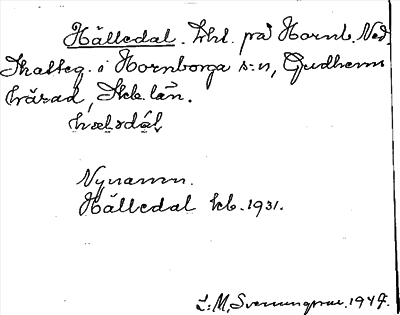 Hälledal. Lht. på Hornb. Ned.
Skatteg. i Hornborga s:n, Gudhems
härad, Skb. län.
Nynamn.
Hälledal kb. 1931.
L: M. Svenungsson. 1947.